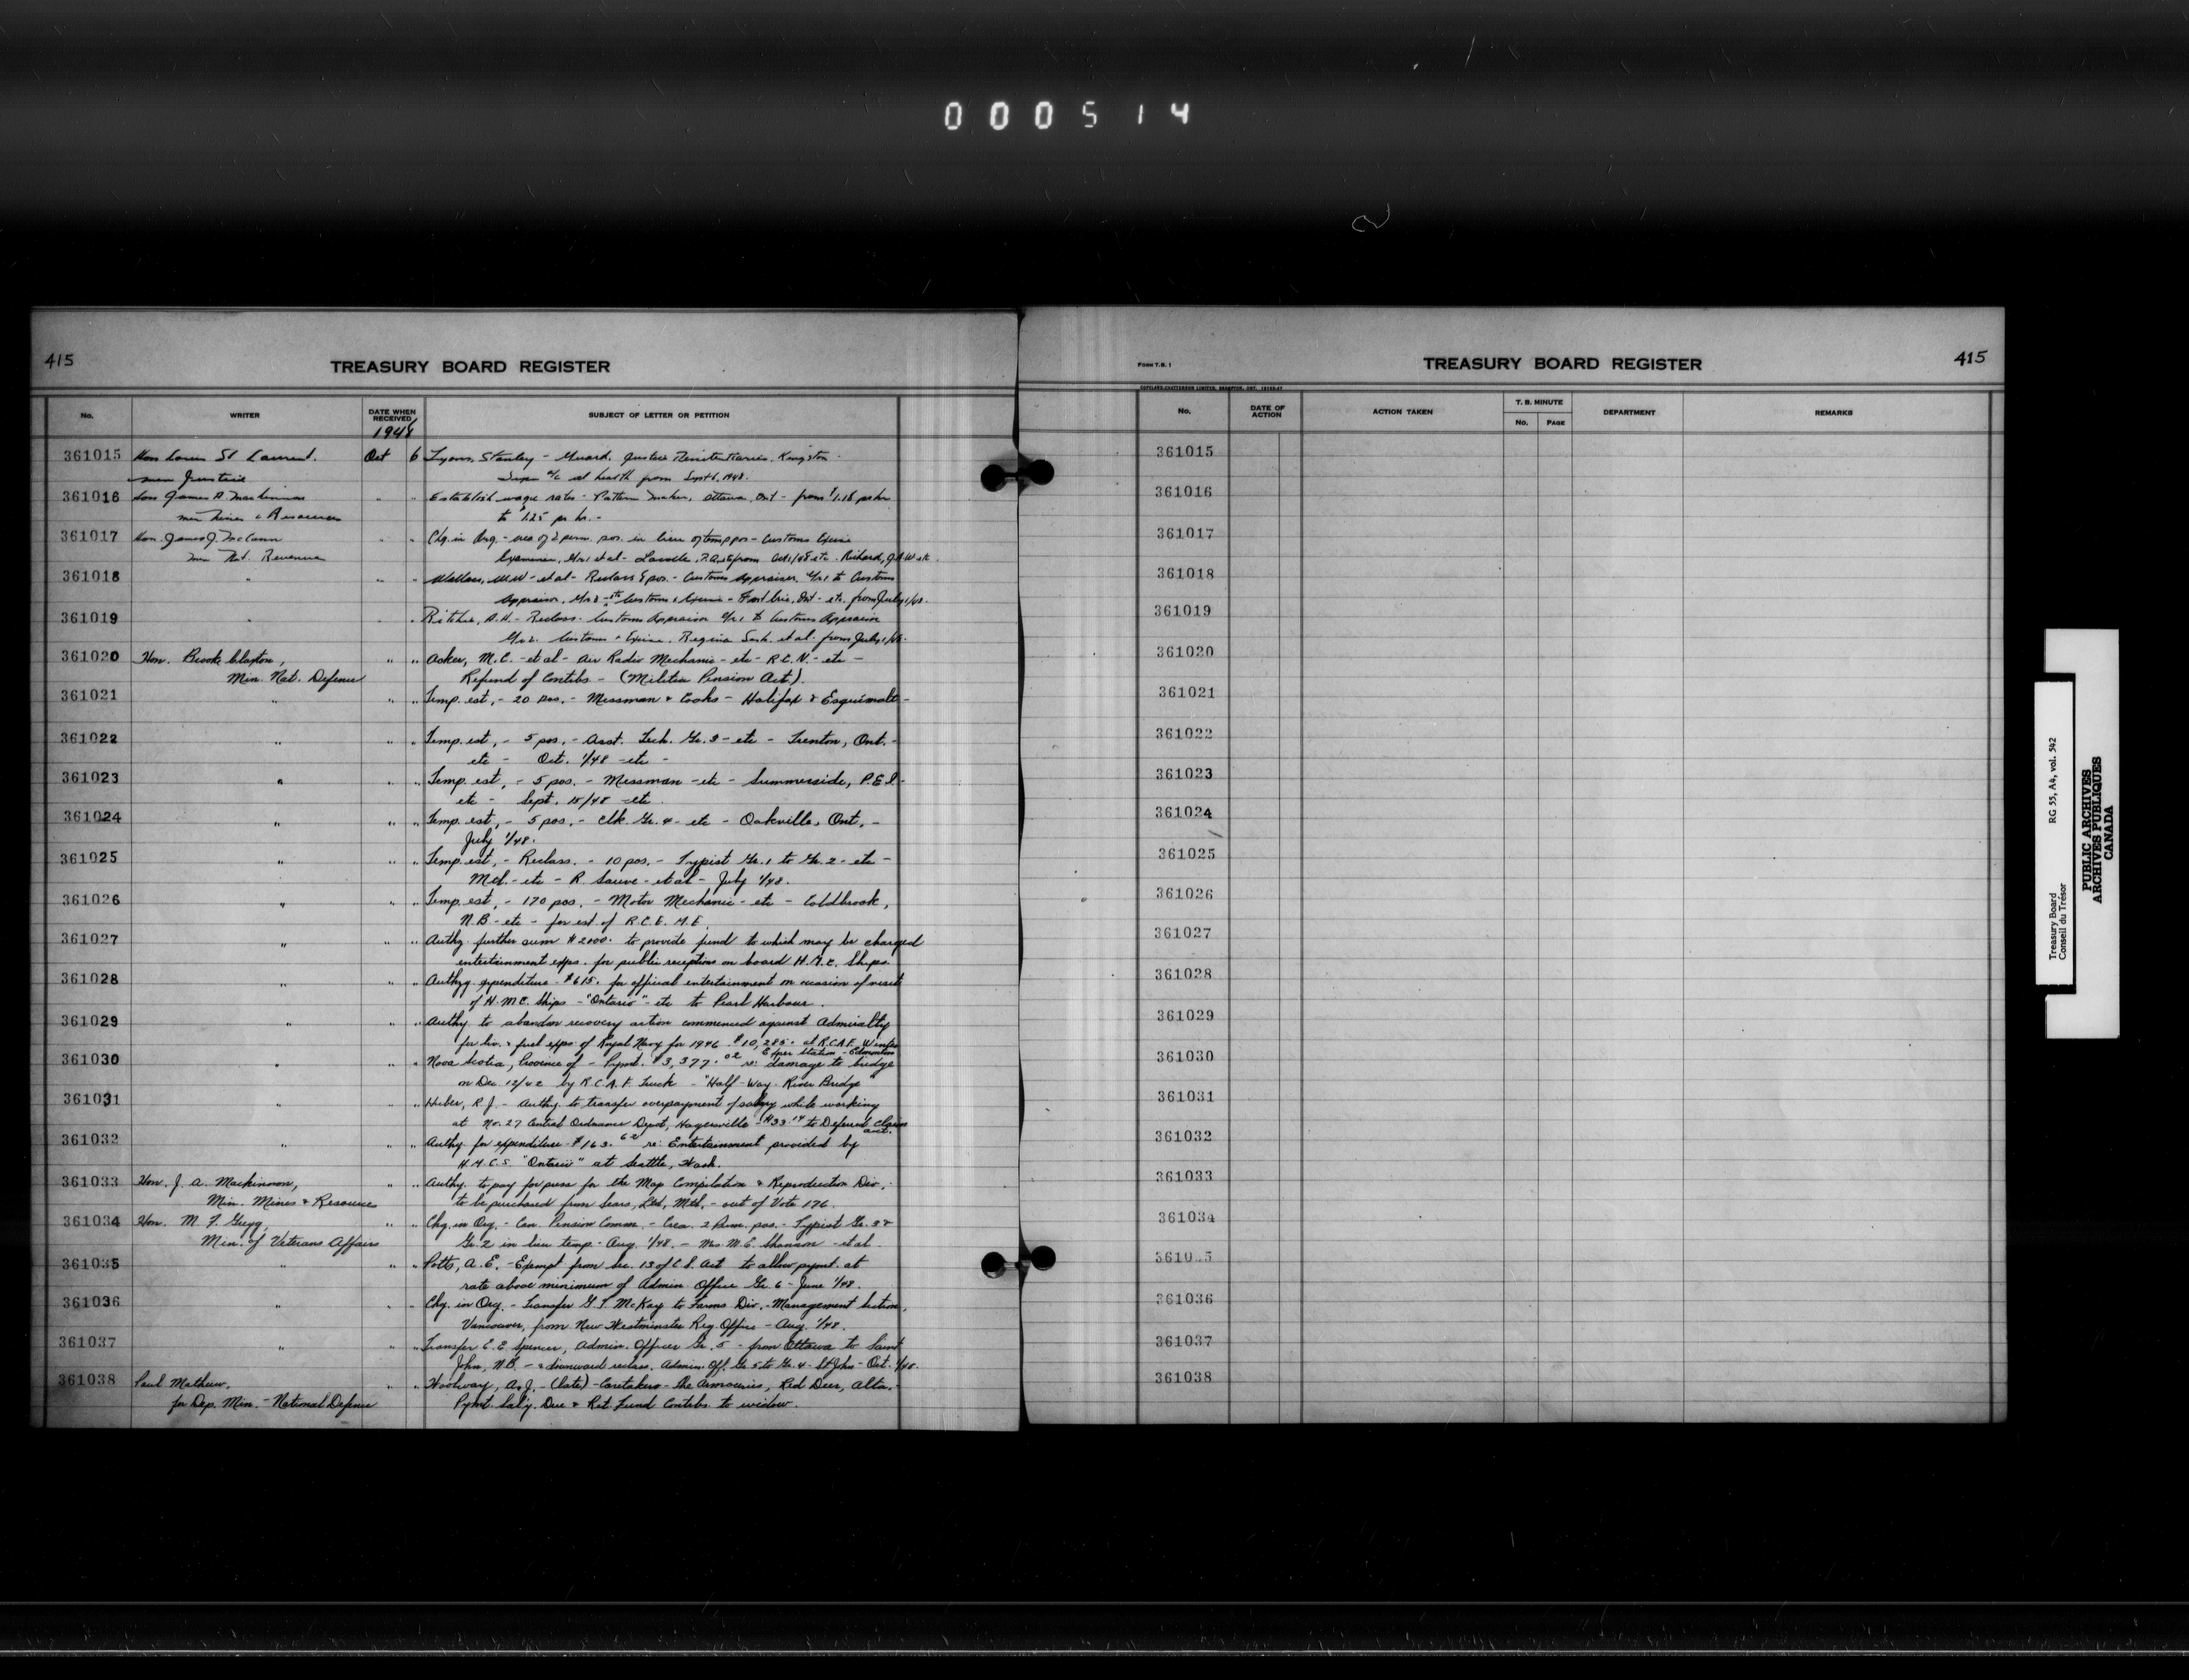 000514
415
TREASURY BOARD REGISTER
No. WRITER DATE WHEN RECEIVED SUBJECT OF LETTER OR PETITION
1948
361015 Hon Louis St Laurent. Oct 6 Lyons, Stanley - Guard, Justice Penitentiaries, Kingston
Min Justice from Sept 6, 1948.
361016 Hon James A. MacKinnon " " Establish wage rates - Pattern Maker, Ottawa, Ont - from $1.18 per hr
Min Mines & Resources to $1.25 pr hr. -
361017 Hon James J. McCann " " Chg. in Org. - of 2 perm. pos. in lieu of temp pos - Customs Excise
Min Nat. Revenue Examiner, Gr. 1 et al - from etc. Richard, J.A.W etc.
361018 " " " Wallace, W.W - et al - Reclass 8 pos. - Customs Appraiser, Gr. 1 to Customs
Appraiser, Gr 2 - etc Customs & Excise - Fort Erie, Ont - etc. from July 1/48.
361019 " " " Ritchie, A.H. - Reclass. Customs Appraiser Gr. 1 to Customs Appraiser
Gr 2. Customs & Excise, Regina Sask. et al. from July 1/48.
361020 Hon. Brooke Claxton, " " Acker, M.C. - et al - Air Radio Mechanic - etc - R.C.N. - etc -
Min. Nat. Defence Refund of Contibs. - (Militia Pension Act).
361021 " " " Temp. est, - 20 pos. - Messman & Cooks - Halifax & Esquimalt -
361022 " " " Temp. est, - 5 pos, - Asst. Tech. Gr. 3 - etc - Trenton, Ont. -
etc - Oct. 1/48 - etc -
361023 " " " Temp. est, - 5 pos. - Messman - etc - Summerside, P.E.I. -
etc - Sept. 15/48 - etc.
361024 " " " Temp. est, - 5 pos, - Clk. Gr. 4 - etc - Oakville, Ont, -
July 1/48.
361025 " " " Temp. est, - Reclass. - 10 pos. - Typist Gr. 1 to Gr. 2 - etc -
Mtl. - etc - R. Sauve - et al - July 1/48.
361026 " " " Temp. est, - 170 pos. - Motor Mechanic - etc - Coldbrook,
N.B - etc - for est. of R.C.E.M.E.
361027 " " " Authy. further sum $2000. to provide fund to which may be charged
entertainment exps. for public receptions on board H.M.C. Ships.
361028 " " " Authy. expenditure $615. for official entertainment on occasion of visit
of H.M.C. Ships - "Ontario" - etc to Pearl Harbour.
361029 " " " Authy to abandon recovery action commenced against Admiralty
for liv. & fuel exps. of Royal Navy for 1946 $10,285. at R.C.A.F. Winter
Exper Station - Edmonton
361030 " " " Nova Scotia, Province of - Pymt. $3,377.02 re: damage to bridge
on Dec. 12/42 by R.C.A.F. Truck - "Half-Way-River Bridge"
361031 " " " Huber, R.J. - Authy. to transfer overpayment of salary while working
at No. 27 Central Ordnance Depot, Hagersville - $33.14 to Deferred Claim
acct.
361032 " " " Authy. for expenditure $163.62 re: Entertainment provided by
H.M.C.S. "Ontario" at Seattle, Wash.
361033 Hon. J. A. Mackinnon, " " Authy. to pay for press for the Map Compilation & Reproduction Div,
Min. Mines & Resources to be purchased from Sears, Ltd, Mtl, - out of Vote 176.
361034 Hon. M. F. Gregg, " " Chg. in Org. - Can. Pension Comm. - Crea. 2 Perm. pos. - Typist Gr. 3 &
Min. of Veterans Affairs Gr. 2 in lieu temp - Aug. 1/48. - Mrs. M. E. Shannon - et al
361035 " " " Potts, A. E. - Exempt from Sec. 13 of C.S. Act to allow pymt. at
rate above minimum of Admin. Office Gr. 6 - June 1/48.
361036 " " " Chg. in Org. - Transfer G.T. McKay to Farms Div. - Management Section,
Vancouver, from New Westminster Reg. Office - Aug. 1/48.
361037 " " " Transfer E. E. Spencer, Admin. Officer Gr. 5 - from Ottawa to Saint
John, N.B. - & downward reclass. Admin. Off. Gr. 5 to Gr. 4 - St John - Oct. 1/48.
361038 Paul Mathieu, " " Woolway, A.J. - (late) - Caretaker - the Armouries, Red Deer, Alta. -
for Dep. Min. - National Defence Pymt. Sal'y. Due & Ret. Fund Contibs. to widow.
FORM T.B. 1
TREASURY BOARD REGISTER
415
COPELAND-CHATTERSON LIMITED, BRAMPTON, ONT.
No. DATE OF ACTION ACTION TAKEN T. B. MINUTE No. PAGE DEPARTMENT REMARKS
361015
361016
361017
361018
361019
361020
361021
361022
361023
361024
361025
361026
361027
361028
361029
361030
361031
361032
361033
361034
361035
361036
361037
361038
Treasury Board RG 55, A4, vol. 542
Conseil du Trésor
PUBLIC ARCHIVES
ARCHIVES PUBLIQUES
CANADA